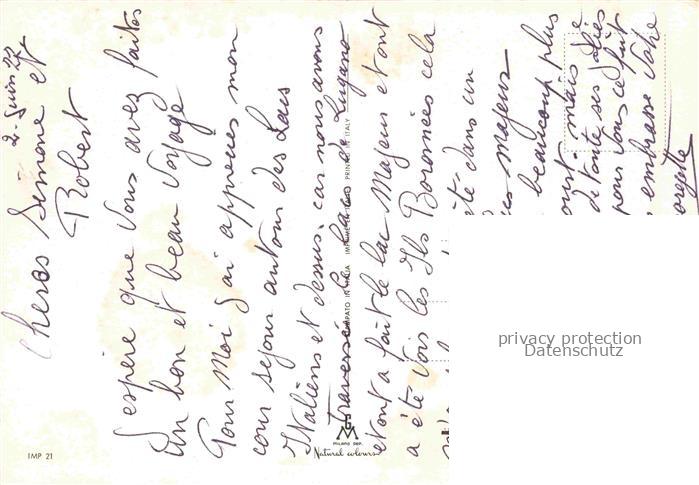 2 Juin 77
Cheres Simone et
Robert
J'espère que vous avez faites
Un bon et beau voyage
Pour Moi J'ai apprecies mon
cour sejour autour des Lacs
Italiens et dessus. car nous avons
Traversé le Lac de Lugano
etont a fait le lac Majeur etont
a été Vois les Iles Boromées cela
été dans un
majeur
beaucoup plus
mais je
de toute ses
pour vous ce fut
embrasse
STAMPATO IN ITALIA PRINTED IN ITALY
MILANO DEP.
Natural colours
IMP 21
privacy protection
Datenschutz